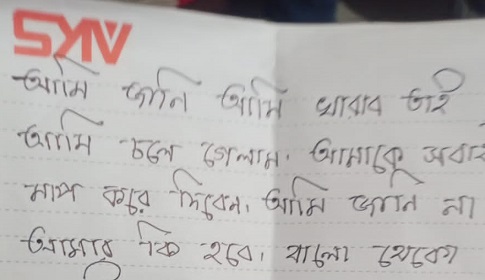 SMV
আমি জানি আমি খারাব তাই
আমি চলে গেলাম. আমাকে সবাই
মাপ করে দিবেন, আমি জানি না
আমার কি হবে, বালো থেকো